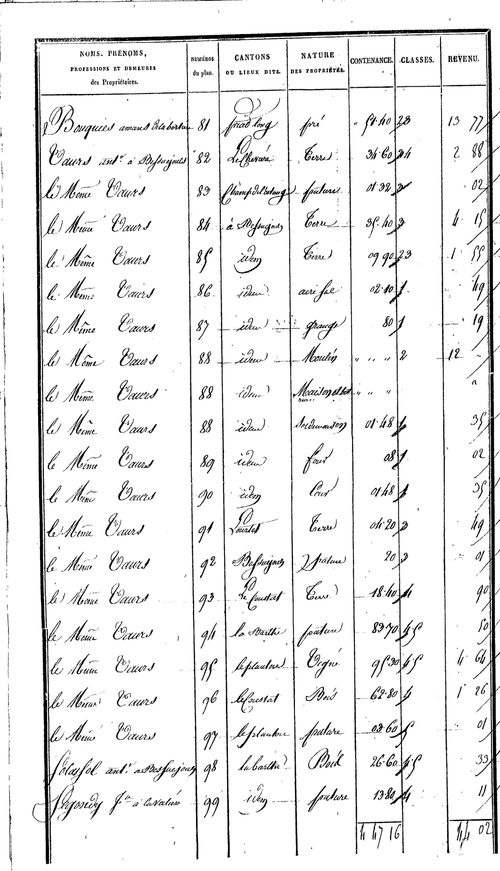 NOMS, PRÉNOMS, PROFESSIONS ET DEMEURES des Propriétaires. Numéros du plan. CANTONS OU LIEUX DITS. NATURE DES PROPRIÉTÉS. CONTENANCE. CLASSES. REVENU.
Bouquies amans 81 pradlong pré 51 40 23 13 77
Vaurs ant. à Bessuejouls 82 Terre 34 60 34 2 88
le Même Vaurs 83 pature 01 32 3 02
le Même Vaurs 84 à Bessuejouls Terre 35 40 3 4 15
le Même Vaurs 85 idem Terre 09 90 23 1 55
le Même Vaurs 86 idem aire sol 02 10 1 49
le Même Vaurs 87 idem grange 80 1 19
le Même Vaurs 88 idem Moulin " " " 2 12
le Même Vaurs 88 idem " " "
le Même Vaurs 88 idem sol de maison 01 48 1 35
le Même Vaurs 89 idem four 08 1 02
le Même Vaurs 90 idem Cour 01 48 1 35
le Même Vaurs 91 Terre 04 20 3 49
le Même Vaurs 92 pature 20 3 01
le Même Vaurs 93 le Coustat Terre 18 40 4 90
le Même Vaurs 94 la Barthe pature 83 70 45 50
le Même Vaurs 95 le plantou Vigne 95 30 45 4 64
le Même Vaurs 96 le Coustat Bois 62 80 4 1 26
le Même Vaurs 97 le plantou pature 03 60 5 01
ant. à Bessuejouls 98 la barthe Bois 26 60 45 33
99 idem pature 13 80 4 11
4 47 16 44 02